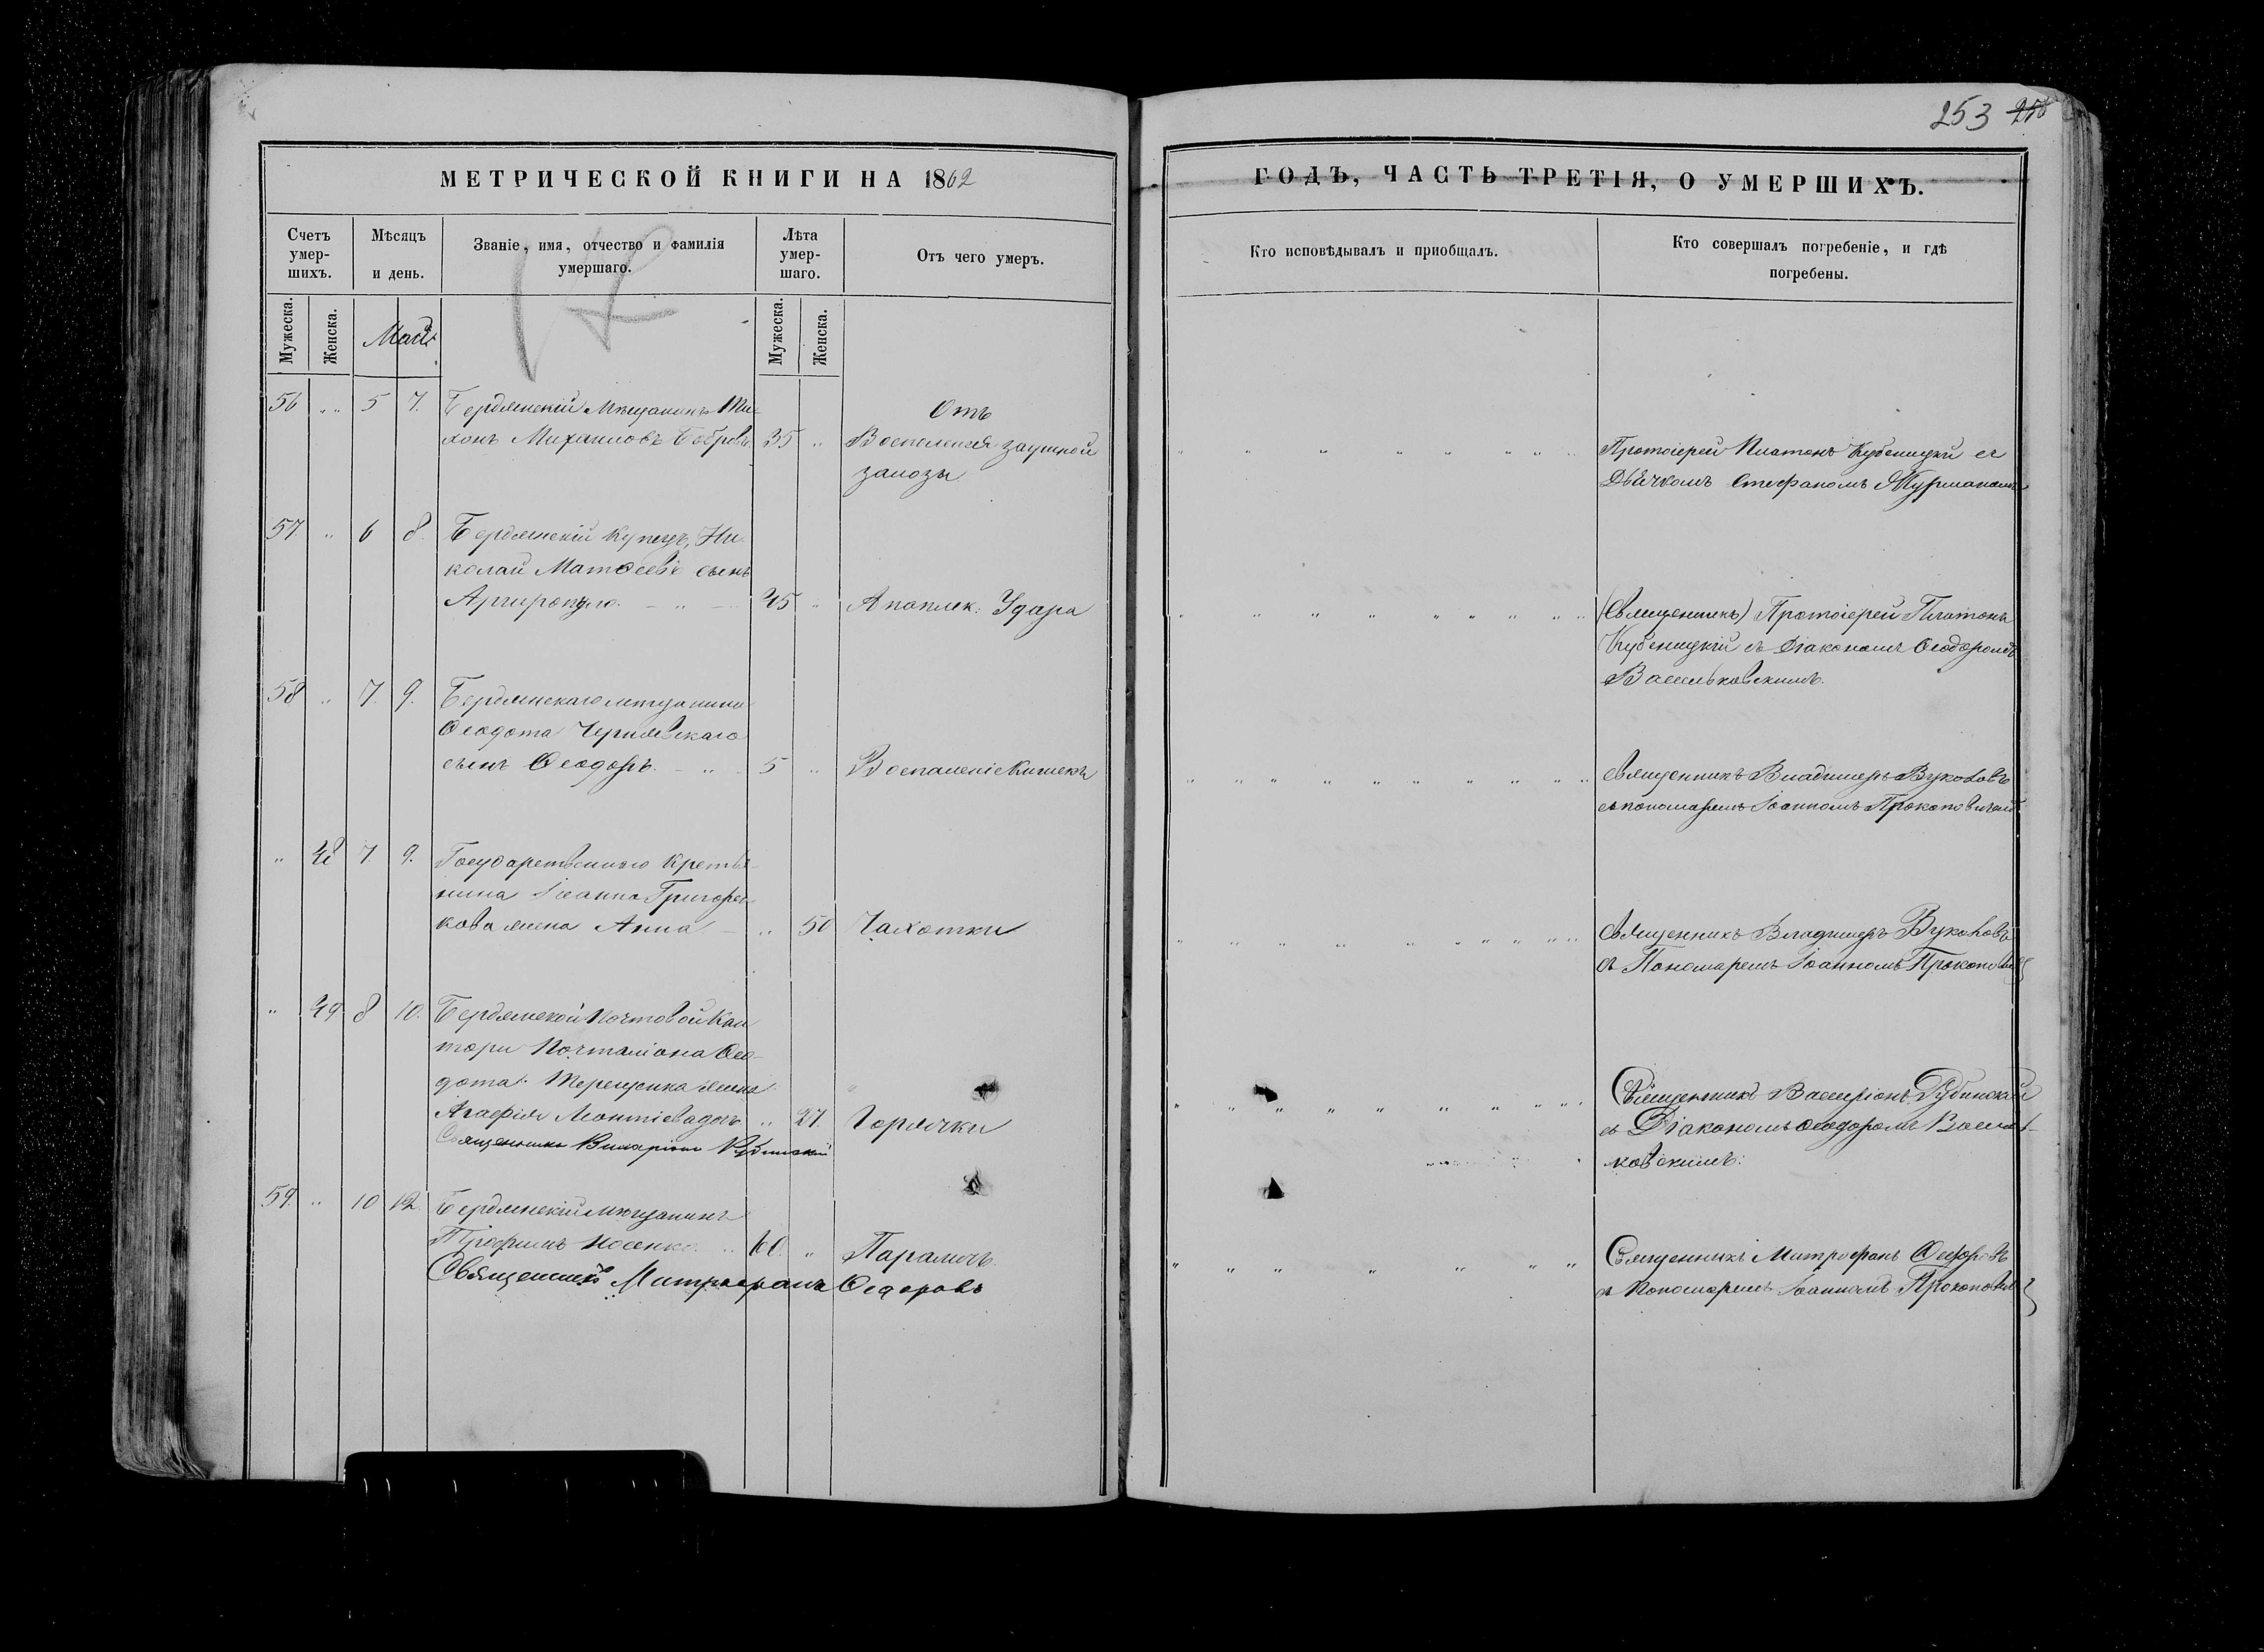 253
МЕТРИЧЕСКОЙ КНИГИ НА 1862
ГОДЪ, ЧАСТЬ ТРЕТІЯ, О УМЕРШИХЪ.
Счетъ умер-шихъ.
Мѣсяцъ и день.
Званіе, имя, отчество и фамилія умершаго.
Лѣта умер-шаго.
Отъ чего умеръ.
Кто исповѣдывалъ и приобщалъ.
Кто совершалъ погребеніе, и гдѣ погребены.
Мужеска.
Женска.
Май
Мужеска.
Женска.
56 " 5 7. Бердянскій Мѣщанинъ Ти-
хонъ Михаиловъ Бобровъ 35 "
Отъ
Воспаленія заушной
залозы
Протоіерей Платонъ Кубеницкій съ
Дьячкомъ Стефаномъ
57. " 6 8. Бердянскій Купецъ, Ни-
колай Матѳеевъ сынъ
Аргиропуло. 45 " Апоплек. Удара
(Священникъ) Протоіерей Платонъ
Кубеницкій съ Діакономъ Ѳеодоромъ
Васильковскимъ.
58 " 7. 9. Бердянскаго мѣщанина
Ѳеодота Чернявскаго
сынъ Ѳеодоръ. 5 " Воспаленіе Кишекъ
Священникъ Владимеръ Вуколовъ
съ пономаремъ Іоанномъ Прокоповичемъ
" 48 7 9. Государственнаго Крестья-
нина Іоанна Григорен-
кова жена Анна " 50 Чахотки
Священникъ Владимеръ Вуколовъ
съ Пономаремъ Іоанномъ Прокопович
" 49 8 10. Бердянской Почтовой Кон
торы Почталіона Ѳео-
дота Терещенка жена
Агафія Леонтіева дочь " 27. Горячки
Священникъ Виларіонъ Рубинскій
Священникъ Рубинскій
съ Діакономъ Ѳеодоромъ Василь-
ковскимъ.
59. " 10 12. Бердянскій мѣщанинъ
Трофимъ Носенко " 60. " Параличъ.
Священникъ Митрофанъ Ѳедоровъ
Священникъ Митрофанъ Ѳедоровъ
съ Пономаремъ Іоанномъ Прокопович